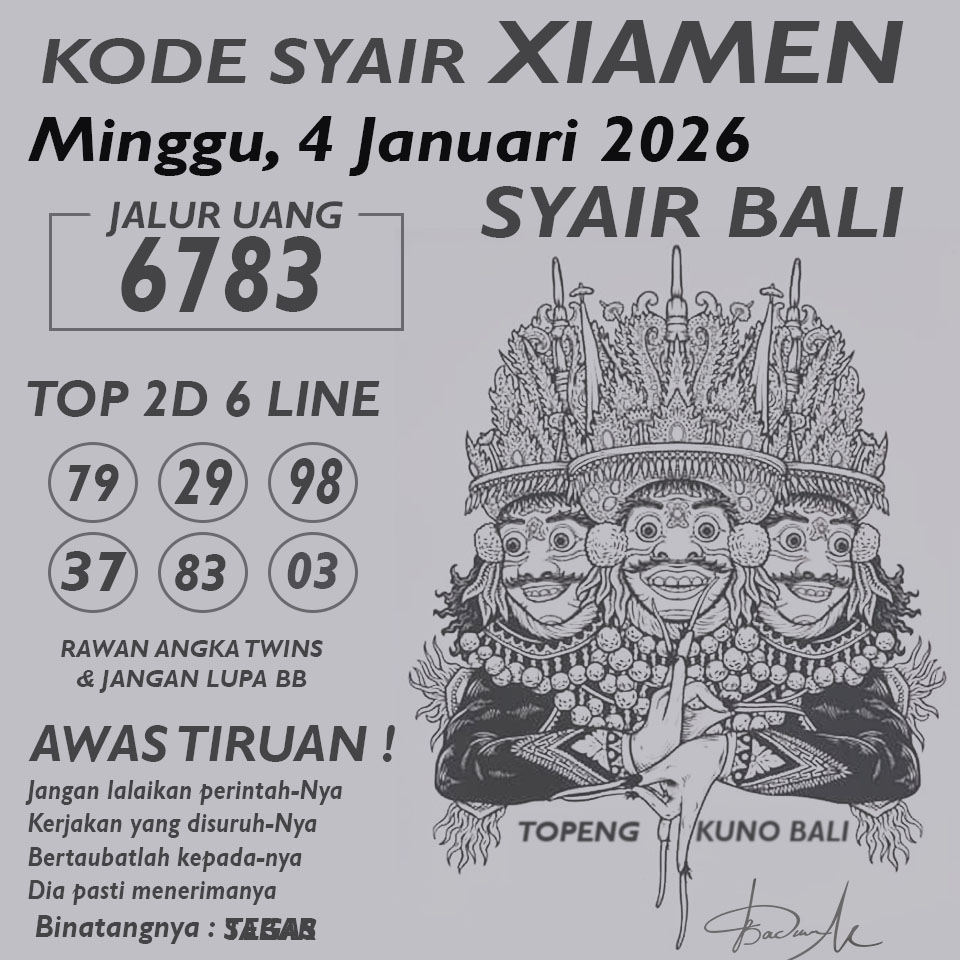 KODE SYAIR XIAMEN
Minggu, 4 Januari 2026
SYAIR BALI
JALUR UANG
6783
TOP 2D 6 LINE
79 29 98
37 83 03
RAWAN ANGKA TWINS
& JANGAN LUPA BB
AWAS TIRUAN !
Jangan lalaikan perintah-Nya
Kerjakan yang disuruh-Nya
Bertaubatlah kepada-nya
Dia pasti menerimanya
Binatangnya :
TOPENG KUNO BALI